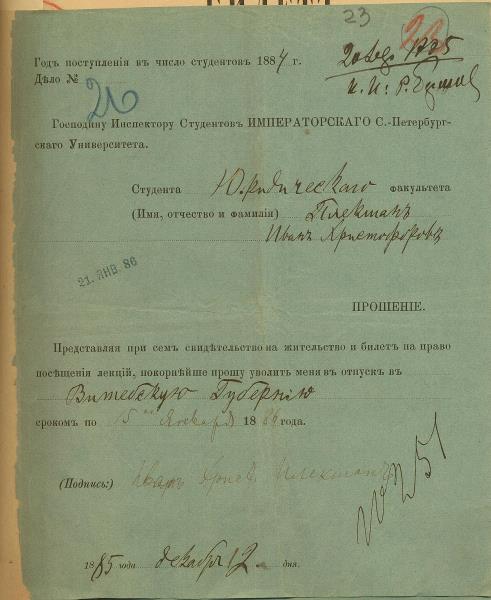 23
Годъ поступленія въ число студентовъ 1884 г.
Дѣло №
20
Господину Инспектору Студентовъ ИМПЕРАТОРСКАГО С.-Петербург-
скаго Университета.
Студента Юридическаго факультета
(Имя, отчество и фамилія) Плекшанъ
Иванъ Христофоровъ
21. ЯНВ. 86
ПРОШЕНІЕ.
Представляя при семъ свидѣтельство на жительство и билетъ на право
посѣщенія лекцій, покорнѣйше прошу уволить меня въ отпускъ въ
Витебскую Губернію
срокомъ по 15 ое Января 1886 года.
(Подпись:) Иванъ Христ Плекшанъ
№ 251
1885 года декабр 12 дня.